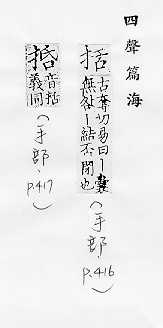 四聲篇海
括
古奪切易曰一囊
無咎一結否閉也
(手部, p.416)
𢬸
音括
義同
(手部, p.417)